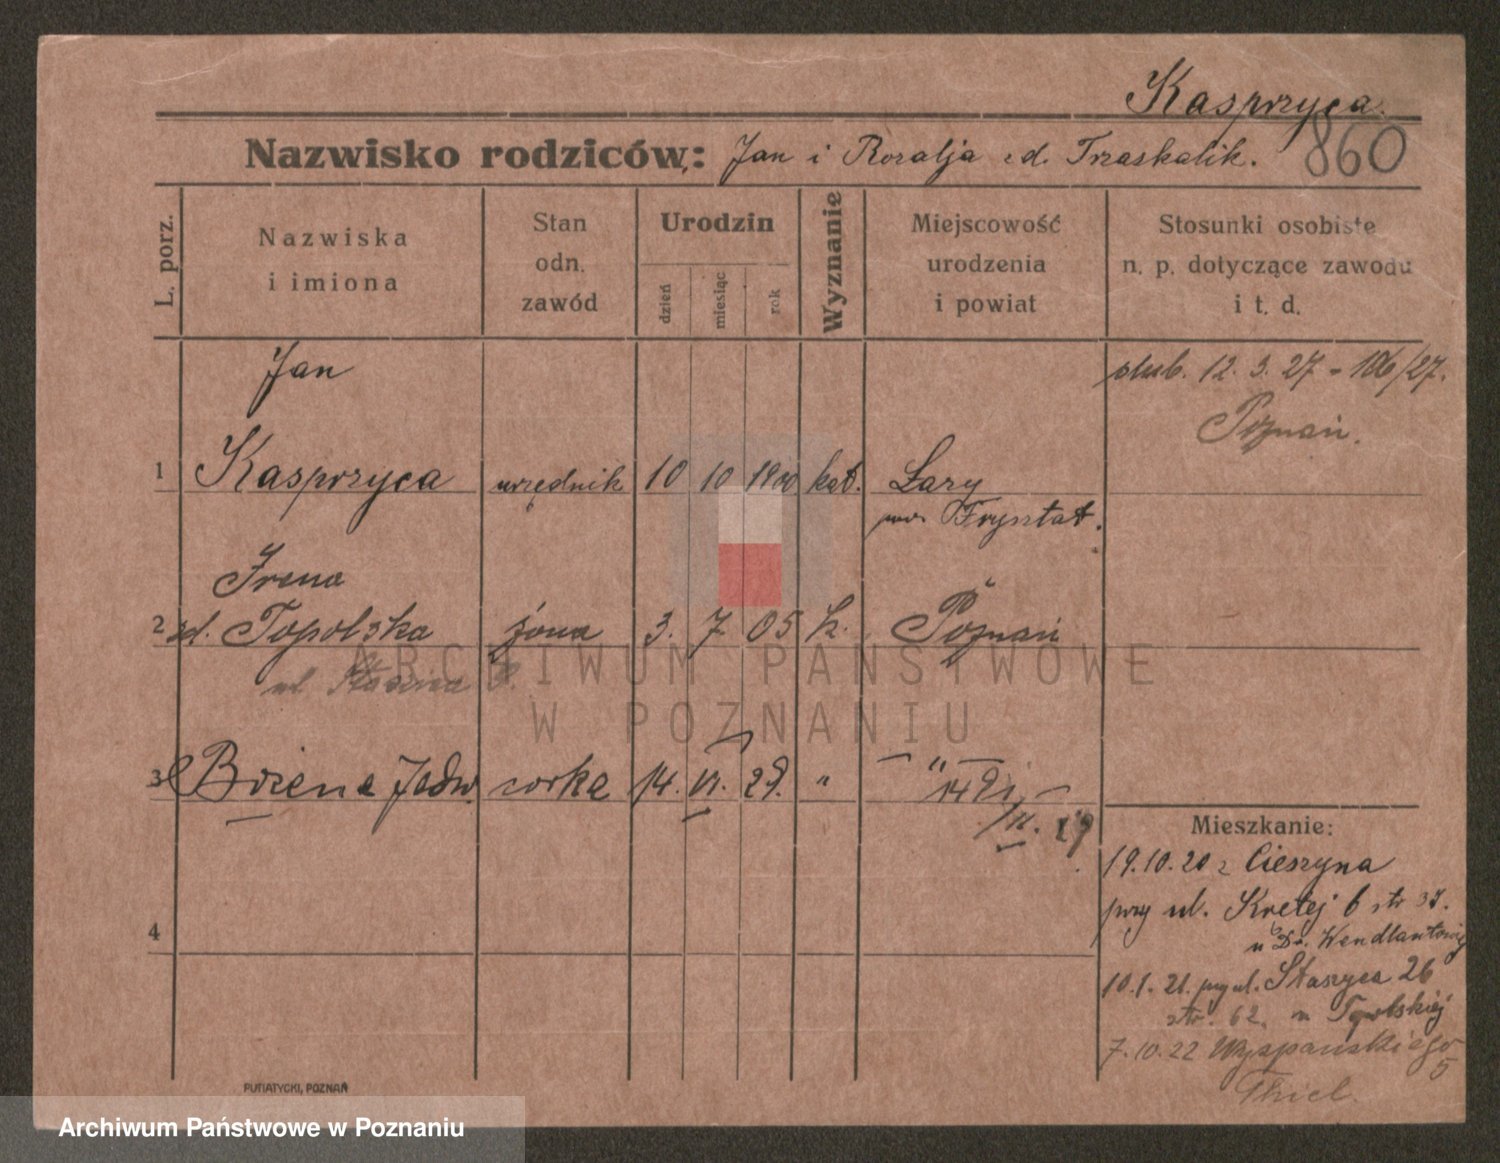 Kasprzyca.
860
Nazwisko rodziców: Jan i Rozalja zd. Trzaskalik.
L. porz.
Nazwiska
i imiona
Stan
odn.
zawód
Urodzin
dzień
miesiąc
rok
Wyznanie
Miejscowość
urodzenia
i powiat
Stosunki osobiste
n. p. dotyczące zawodu
i t. d.
Jan
ślub. 12. 3. 27 - 106/27.
Poznań.
1 Kasprzyca urzędnik 10 10 1900 kat. Łazy
pow. Frysztat.
Irena
2 zd. Topolska żona 3. 7. 05 k. Poznań
ul.
3 Bożena Jadw. córka 14. VI. 29. " "
Mieszkanie:
19.10.20 z Cieszyna
przy ul. Krętej 6 str 37.
u Dr. Wendlantowej
10.1.21. przy ul. Staszyca 26
str. 62. u Topolskiej
7.10.22 Wyspiańskiego
5
Thiel.
4
PUTIATYCKI, POZNAŃ
ARCHIWUM PAŃSTWOWE
W POZNANIU
Archiwum Państwowe w Poznaniu